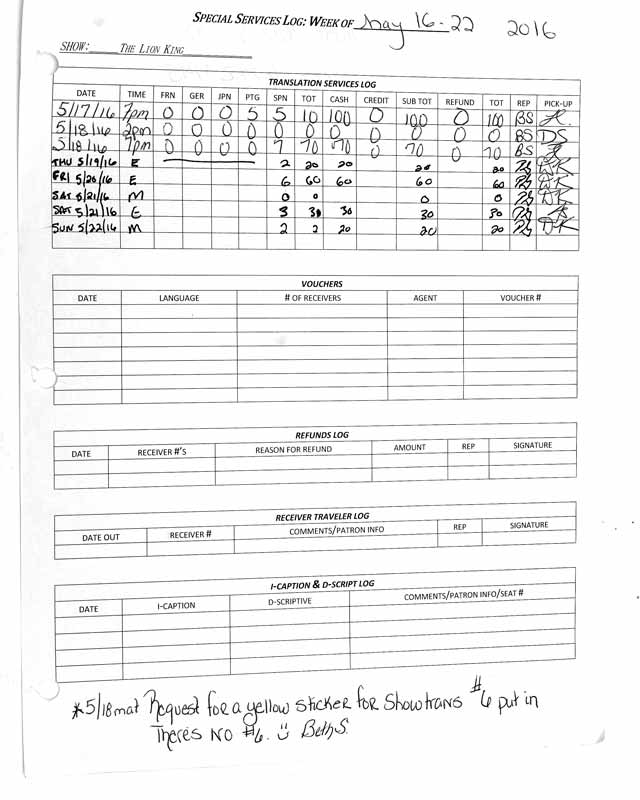 SPECIAL SERVICES LOG: WEEK OF May 16-22 2016
SHOW: THE LION KING
TRANSLATION SERVICES LOG
DATE TIME FRN GER JPN PTG SPN TOT CASH CREDIT SUB TOT REFUND TOT REP PICK-UP
5/17/16 7pm 0 0 0 5 5 10 100 0 100 0 100 BS
5/18/16 2pm 0 0 0 0 0 0 0 0 0 0 0 BS DS
5/18/16 7pm 0 0 0 0 7 70 70 0 70 0 70 BS
THU 5/19/16 E 2 20 20 20 20
FRI 5/20/16 E 6 60 60 60 60
SAT 5/21/16 M 0 0 0 0
SAT 5/21/16 E 3 30 30 30 30
SUN 5/22/16 M 2 2 20 20 20 DK
VOUCHERS
DATE LANGUAGE # OF RECEIVERS AGENT VOUCHER #
REFUNDS LOG
DATE RECEIVER #'S REASON FOR REFUND AMOUNT REP SIGNATURE
RECEIVER TRAVELER LOG
DATE OUT RECEIVER # COMMENTS/PATRON INFO REP SIGNATURE
I-CAPTION & D-SCRIPT LOG
DATE I-CAPTION D-SCRIPTIVE COMMENTS/PATRON INFO/SEAT #
*5/18 mat Request for a yellow sticker for Showtrans #6 put in
There's NO #6. Beth S.